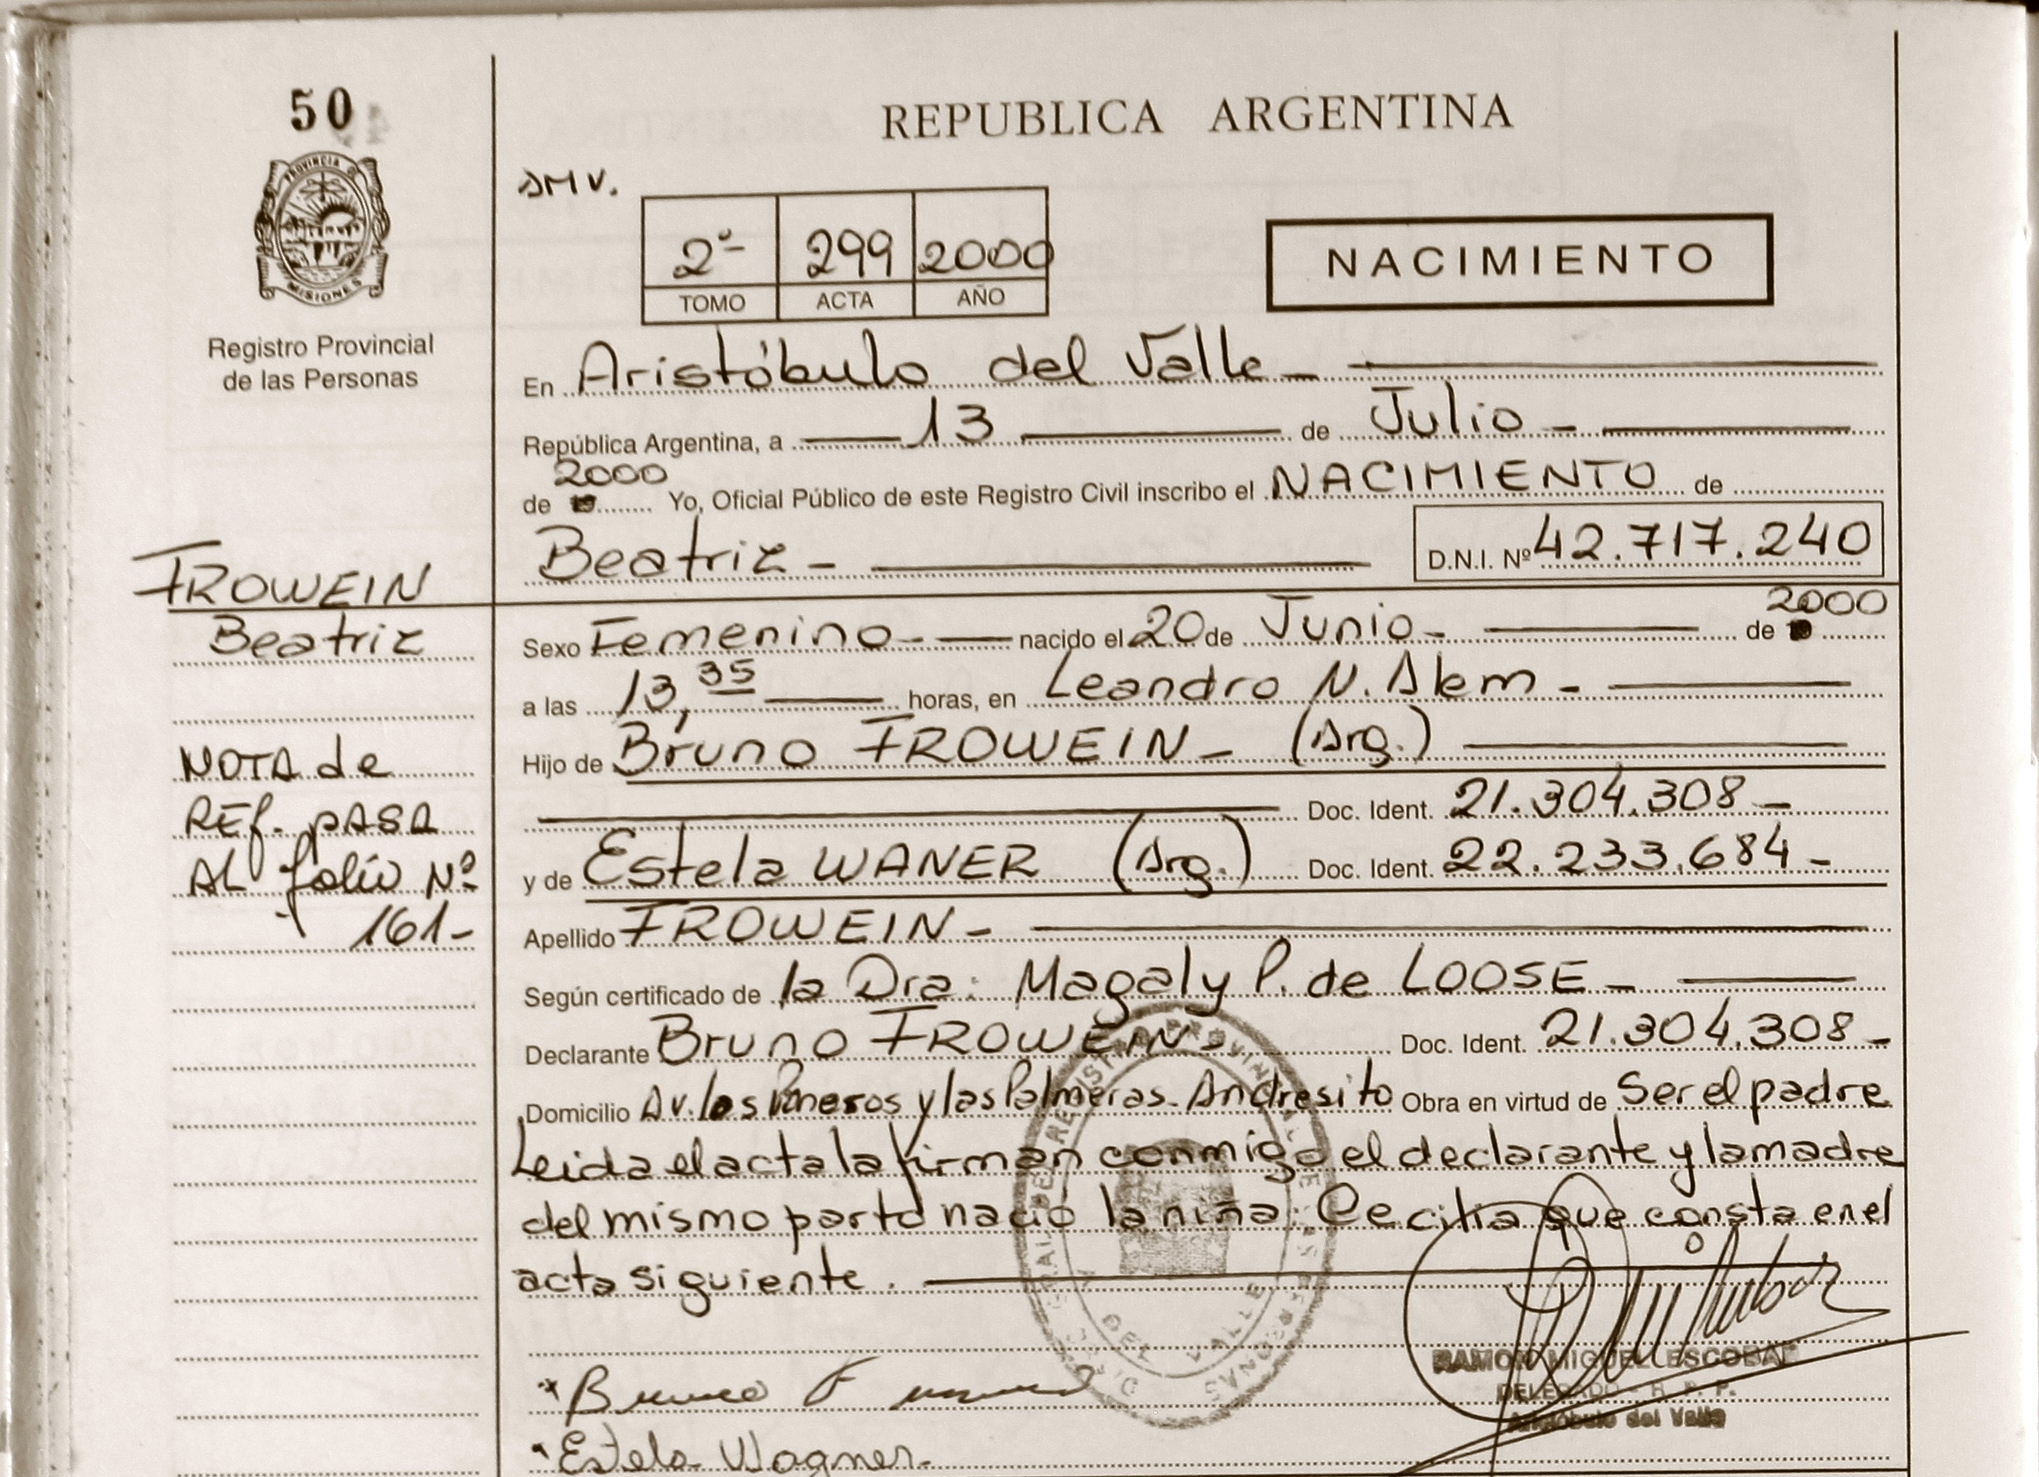 50
REPUBLICA ARGENTINA
AMV.
2º 299 2000
TOMO ACTA AÑO
NACIMIENTO
PROVINCIA DE
MISIONES
Registro Provincial
de las Personas
En Aristóbulo del Valle -
República Argentina, a 13 de Julio -
2000
de 19 Yo, Oficial Público de este Registro Civil inscribo el NACIMIENTO de
Beatriz - D.N.I. Nº 42.717.240
FROWEIN
Beatriz
NOTA de
REf. PASA
AL folio Nº
161-
2000
Sexo Femenino - nacido el 20 de Junio - de 19
a las 13,35 horas, en Leandro N. Alem -
Hijo de Bruno FROWEIN - (Arg.)
Doc. Ident. 21.304.308 -
y de Estela WANER (Arg.) Doc. Ident. 22.233.684 -
Apellido FROWEIN -
Según certificado de la Dra: Magaly P. de LOOSE -
Declarante Bruno FROWEIN - Doc. Ident. 21.304.308 -
Domicilio Av. los Pioneros y las Palmeras - Andresito Obra en virtud de Ser el padre
Leida el acta la firman conmigo el declarante y la madre
del mismo parto nació la niña: Cecilia que consta en el
acta siguiente.
DEL VALLE
RAMON MIGUEL ESCOBAR
DELEGADO - R. P. P.
Aristóbulo del Valle
* Bruno F
* Estela Wagner.